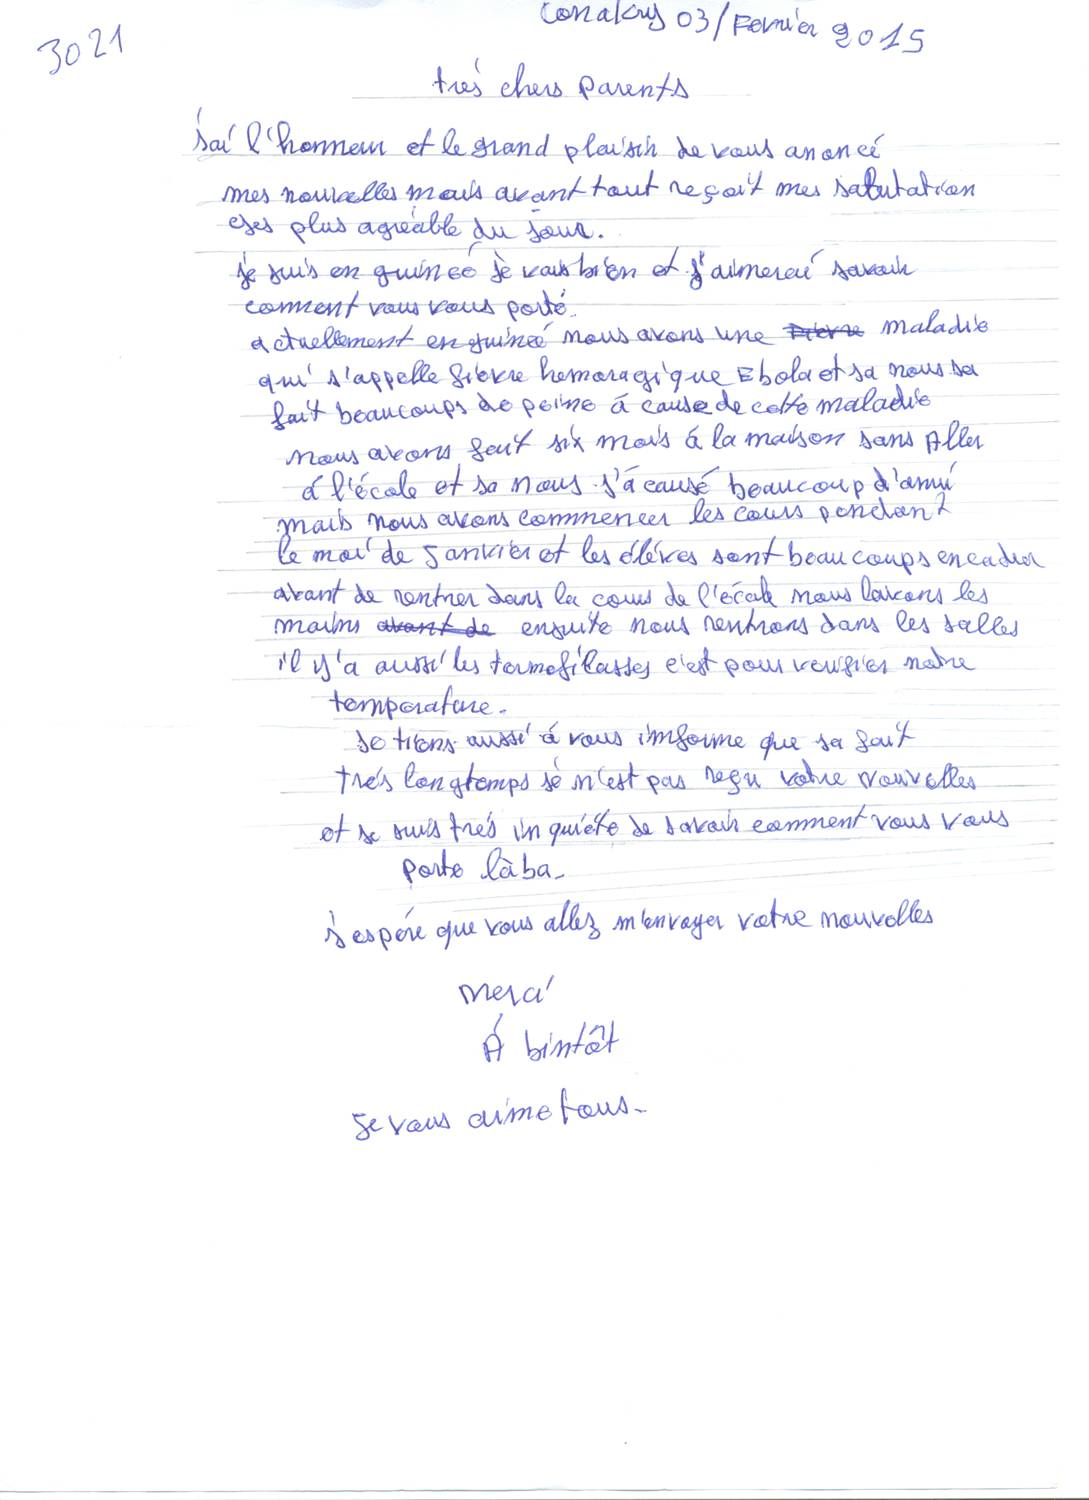 3021
Conakry 03/Fevrier 2015
trés chers parents
J'ai l'honneur et le grand plaisih de vous anoncé
mes nouvelles mais avant tout reçoit mes salutation
les plus agréable du jour.
je suis en guineé je vais bien et j'aimeraé savoir
comment vous vous porté.
actuellement en guineé nous avons une fievre maladie
qui s'appelle fièvre hemoragique Ebola et sa nous sa
fait beaucoups de peine á cause de cette maladie
nous avons fait six mois á la maison sans Aller
á l'école et sa nous s'á causé beaucoup d'annui
mais nous avons commencer les cours pendant
le moi de Janvier et les éléves sont beaucoups encadrer
avant de rentrer dans la cour de l'école nous lavons les
mains avant de ensuite nous rentrons dans les salles
il y'a aussi les termofilasses c'est pour verifier notre
temperature.
Je tiens aussi á vous informe que sa fait
trés longtemps je n'est pas reçu votre nouvelles
et je suis trés inquiéte de savoir comment vous vous
porte làba.
j'espére que vous allez m'envoyer votre nouvelles
merci
Á bintôt
Je vous aime tous.